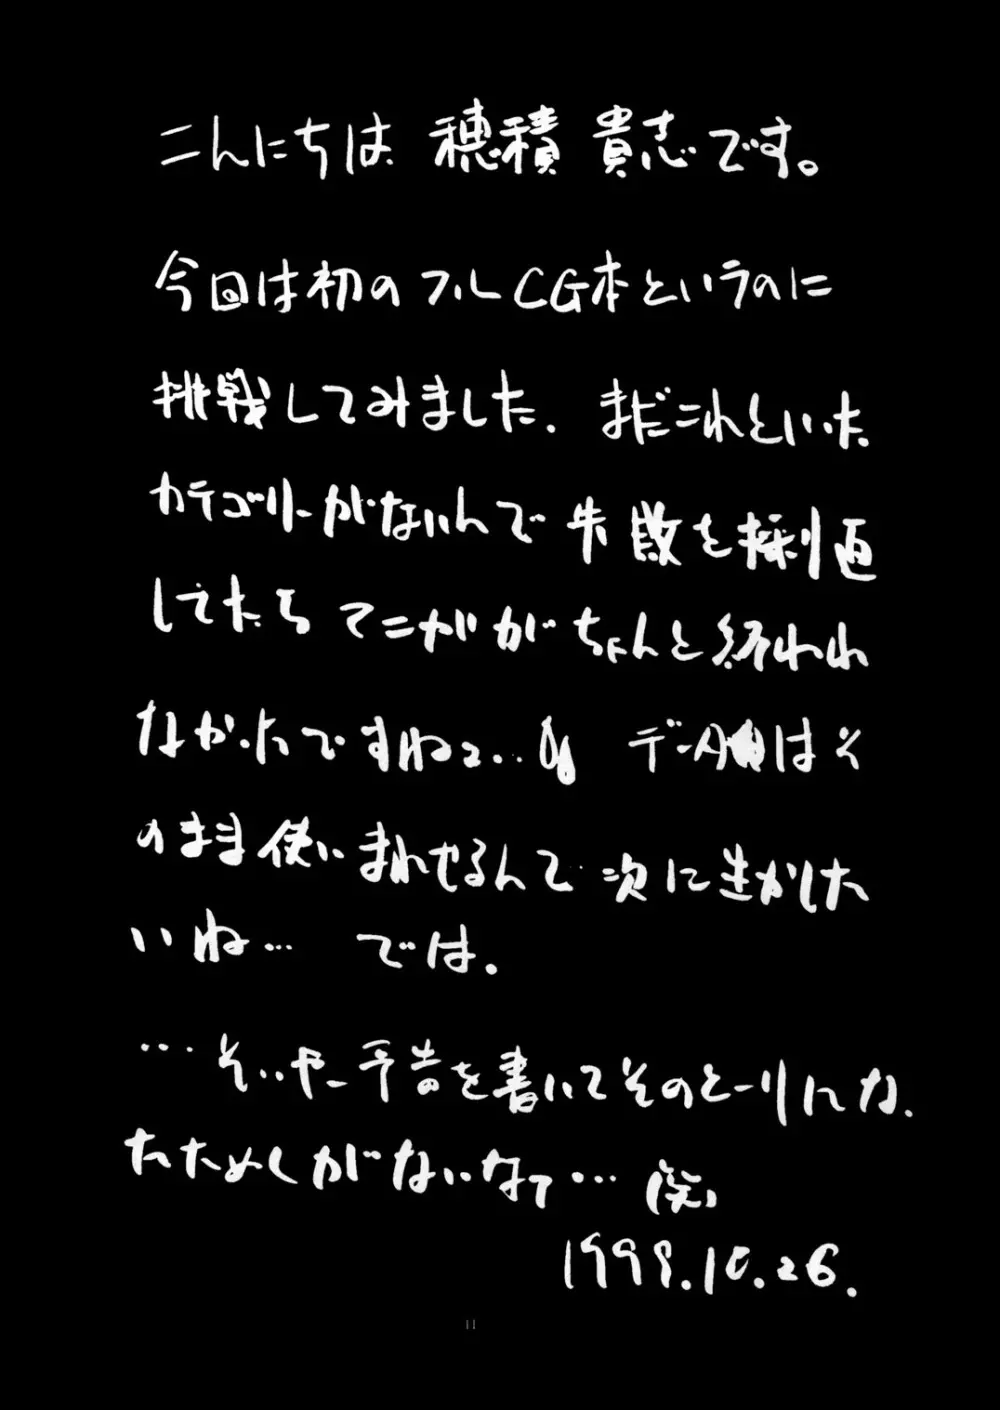 こんにちは 穂積 貴志です。
今回は初のフルCG本というのに
挑戦してみました. まだこれといった
カテゴリーがないんで 失敗を採り返
してたら マニガがちょんと終われ
なかったですねっ… データは そ
のまま使いまわせるんで 次に生かした
いね… では.
…そいやー予告を書いてそのとーりにな.
たためしがないなァ…(笑)
1999.10.26.
11